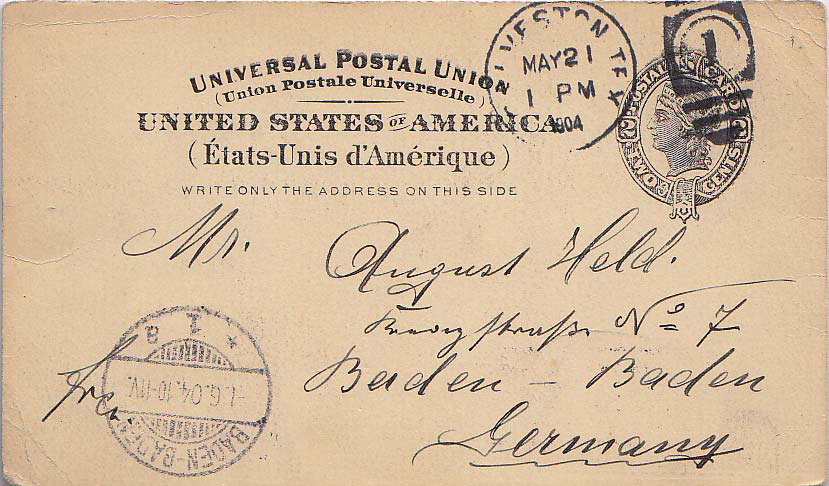 UNIVERSAL POSTAL UNION
(Union Postale Universelle)
UNITED STATES OF AMERICA
(États-Unis d'Amérique)
WRITE ONLY THE ADDRESS ON THIS SIDE
LVESTON TEX
MAY 21
1 PM
1904
1
POSTAL CARD
TWO 2 CENTS 2
Mr. August Held.
Kreuzstraße No 7
Baden - Baden
Germany
* 1 a
-1.6.04.10-11V.
BADEN-BADEN